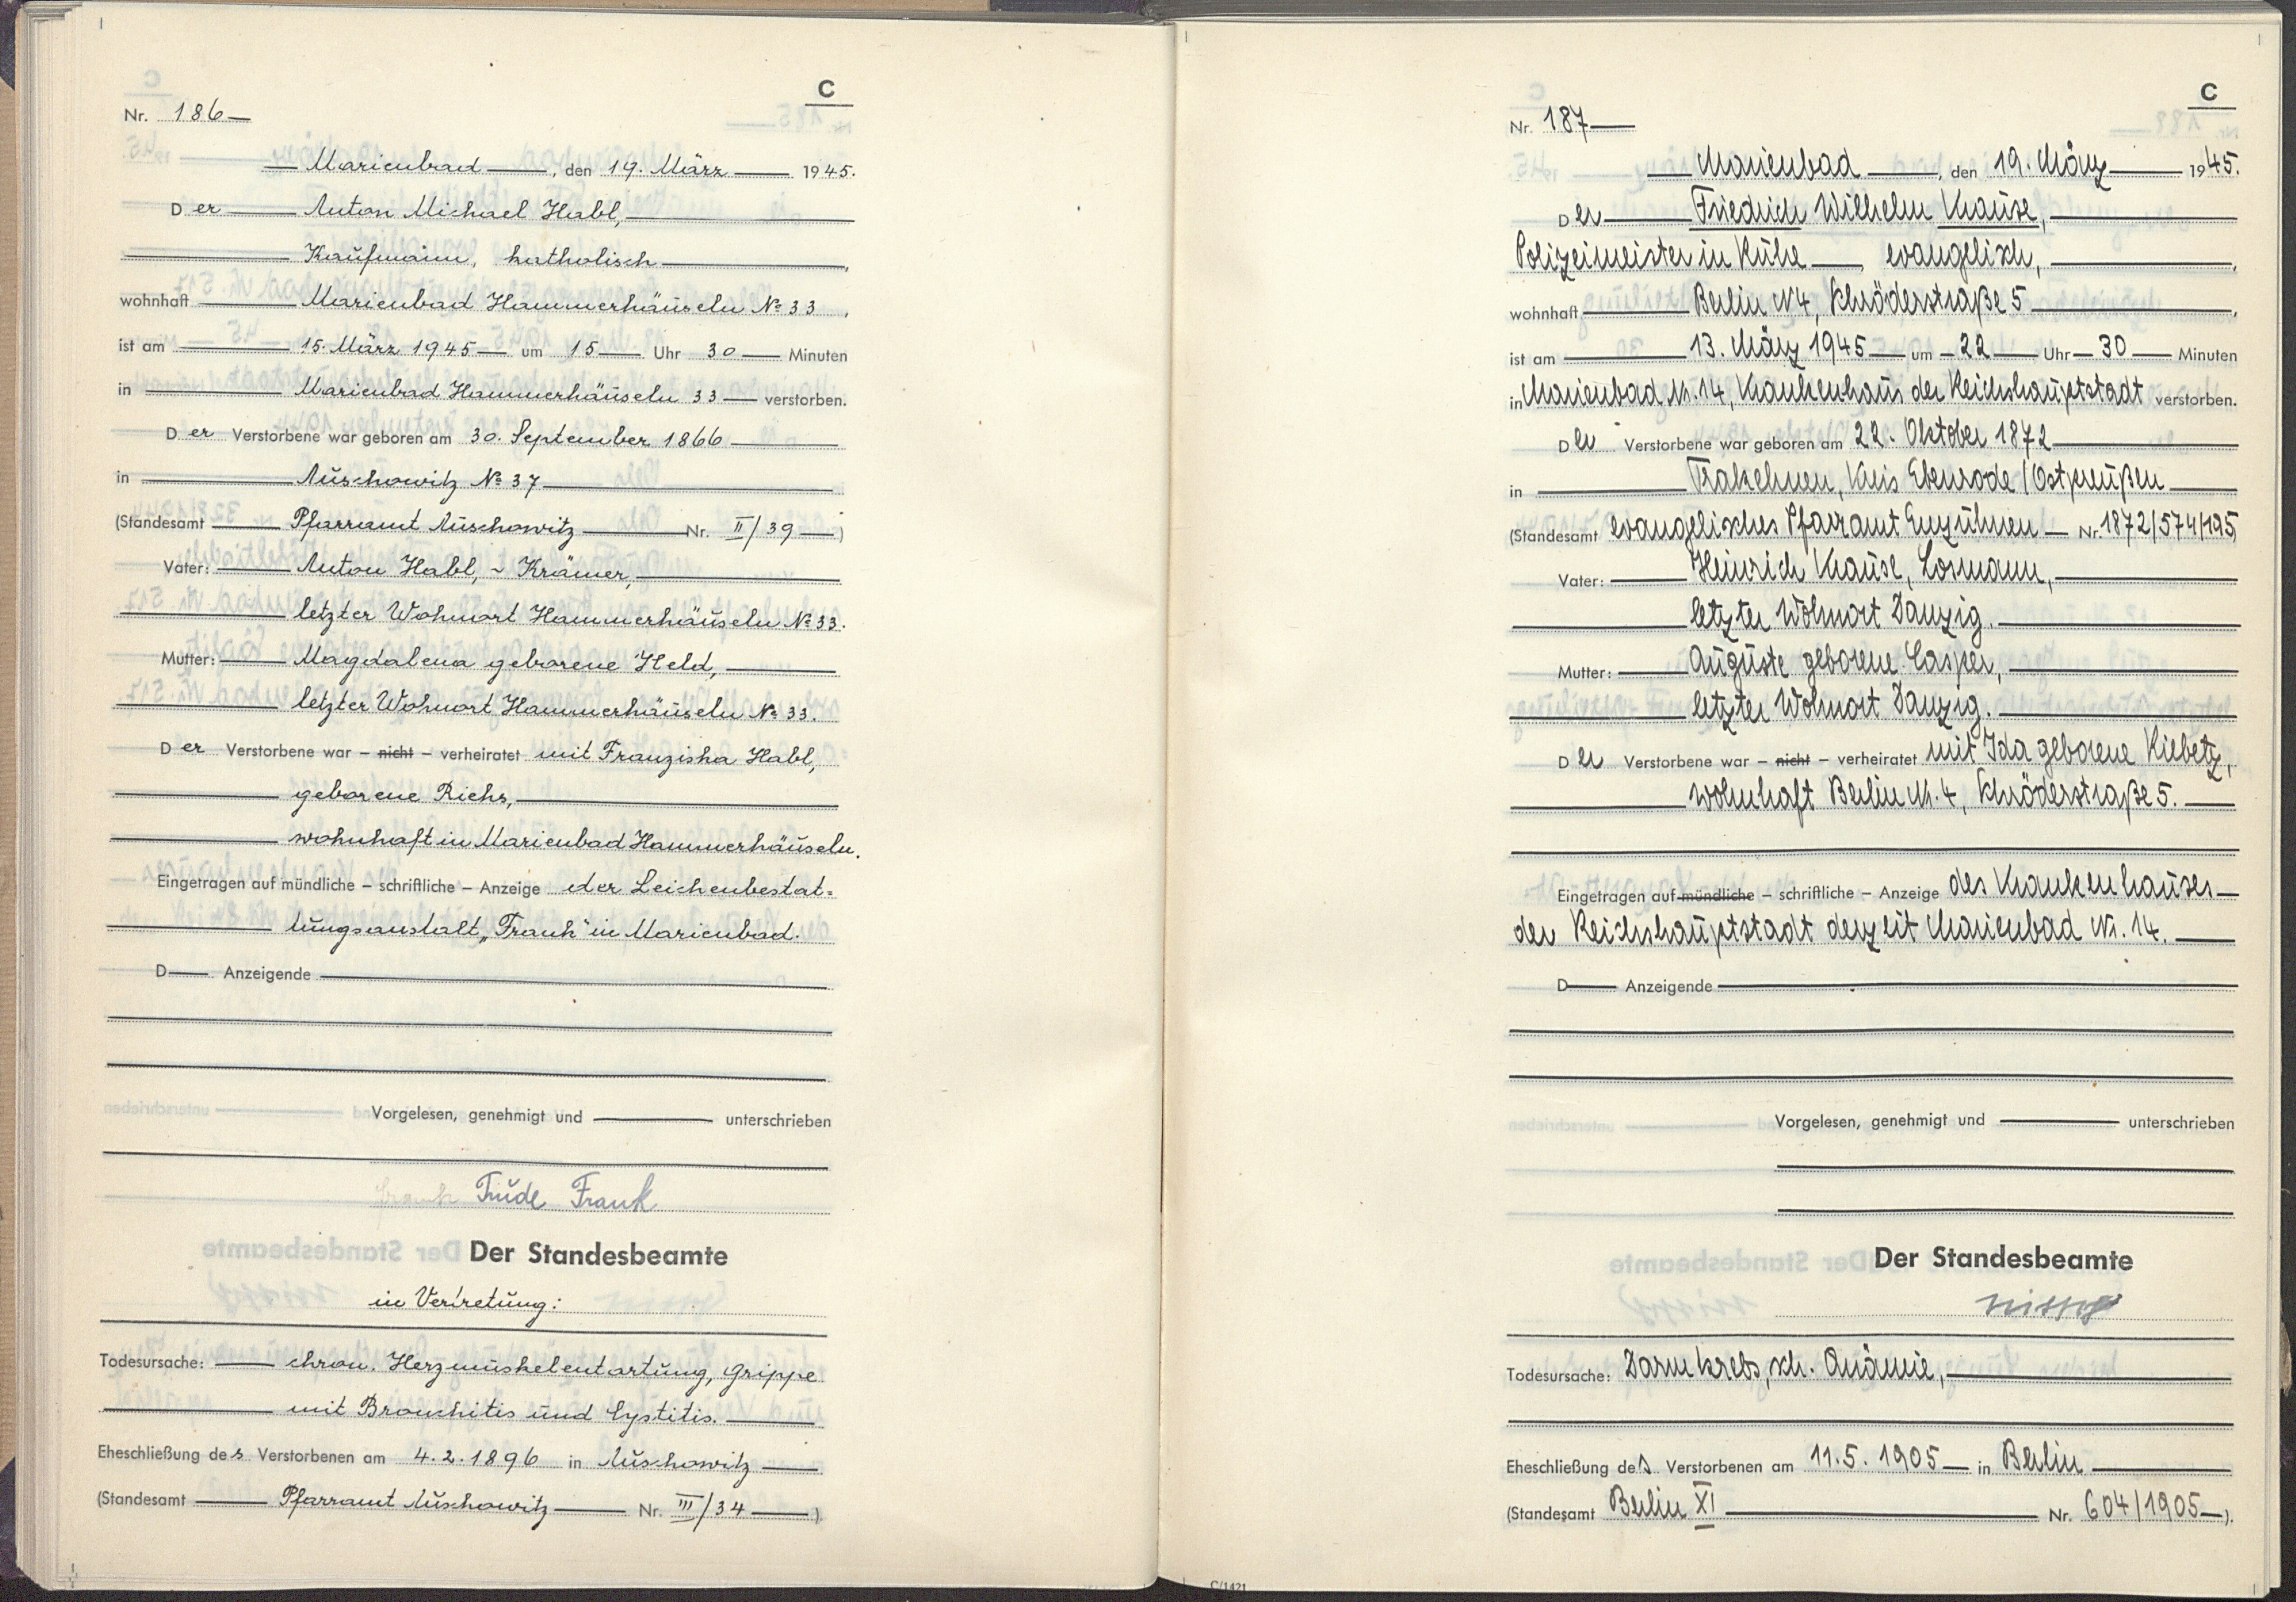 C
Nr. 186
Marienbad, den 19. März 1945.
Der Anton Michael Habl,
Kaufmann, katholisch,
wohnhaft Marienbad Hammerhäuseln № 33,
ist am 15. März 1945 um 15 Uhr 30 Minuten
in Marienbad Hammerhäuseln 33 verstorben.
Der Verstorbene war geboren am 30. September 1866
in Auschowitz № 37
(Standesamt Pfarramt Auschowitz Nr. II/39)
Vater: Anton Habl, Krämer,
letzter Wohnort Hammerhäuseln № 33.
Mutter: Magdalena geborene Held,
letzter Wohnort Hammerhäuseln № 33.
Der Verstorbene war – nicht – verheiratet mit Franziska Habl,
geborene Richs,
wohnhaft in Marienbad Hammerhäuseln.
Eingetragen auf mündliche – schriftliche – Anzeige der Leichenbestat=
tungsanstalt „Frank“ in Marienbad.
D Anzeigende
Vorgelesen, genehmigt und unterschrieben
Trude Frank
Der Standesbeamte
in Vertretung:
Todesursache: chron. Herzmuskelentartung, Grippe
mit Bronchitis und Cystitis.
Eheschließung des Verstorbenen am 4.2.1896 in Auschowitz
(Standesamt Pfarramt Auschowitz Nr. III/34)
C
Nr. 187
Marienbad, den 19. März 1945.
Der Friedrich Wilhelm Krause,
Polizeimeister in Ruhe, evangelisch,
wohnhaft Berlin N4, Schröderstraße 5,
ist am 13. März 1945 um 22 Uhr 30 Minuten
in Marienbad Nr. 14, Krankenhaus der Reichshauptstadt verstorben.
Der Verstorbene war geboren am 22. Oktober 1872
in Trakehnen, Kreis Ebenrode/Ostpreußen
(Standesamt evangelisches Pfarramt Enzuhnen Nr. 1872/574/195)
Vater: Heinrich Krause, Losmann,
letzter Wohnort Danzig.
Mutter: Auguste geborene Casper,
letzter Wohnort Danzig.
Der Verstorbene war – nicht – verheiratet mit Ida geborene Kiebetz,
wohnhaft Berlin N. 4, Schröderstraße 5.
Eingetragen auf mündliche – schriftliche – Anzeige des Krankenhauses
der Reichshauptstadt derzeit Marienbad Nr. 14.
D Anzeigende
Vorgelesen, genehmigt und unterschrieben
Der Standesbeamte
Todesursache: Darmkrebs, sch. Anämie,
Eheschließung des Verstorbenen am 11.5.1905 in Berlin
(Standesamt Berlin XI Nr. 604/1905).
C/1421